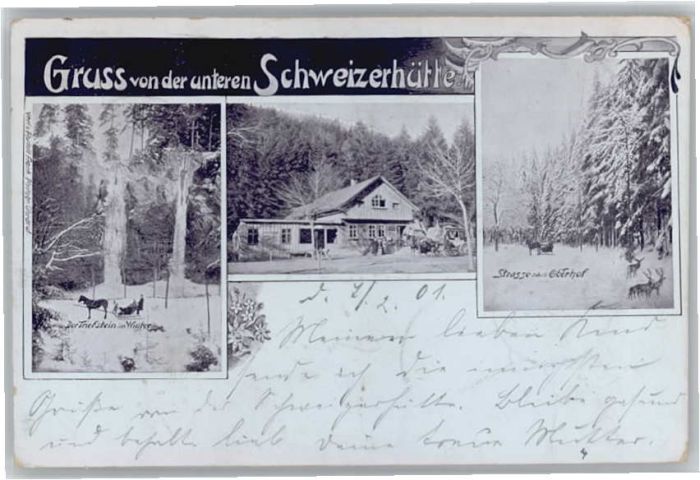 Gruss von der unteren Schweizerhütte.
Der Triefstein im Winter
Strasse nach Oberhof
d. 4/2. 01.
Meinem lieben Kind
sende ich die innigsten
Grüße von der Schweizerhütte. Bleibe gesund
und behalte lieb Deine treue Mutter.